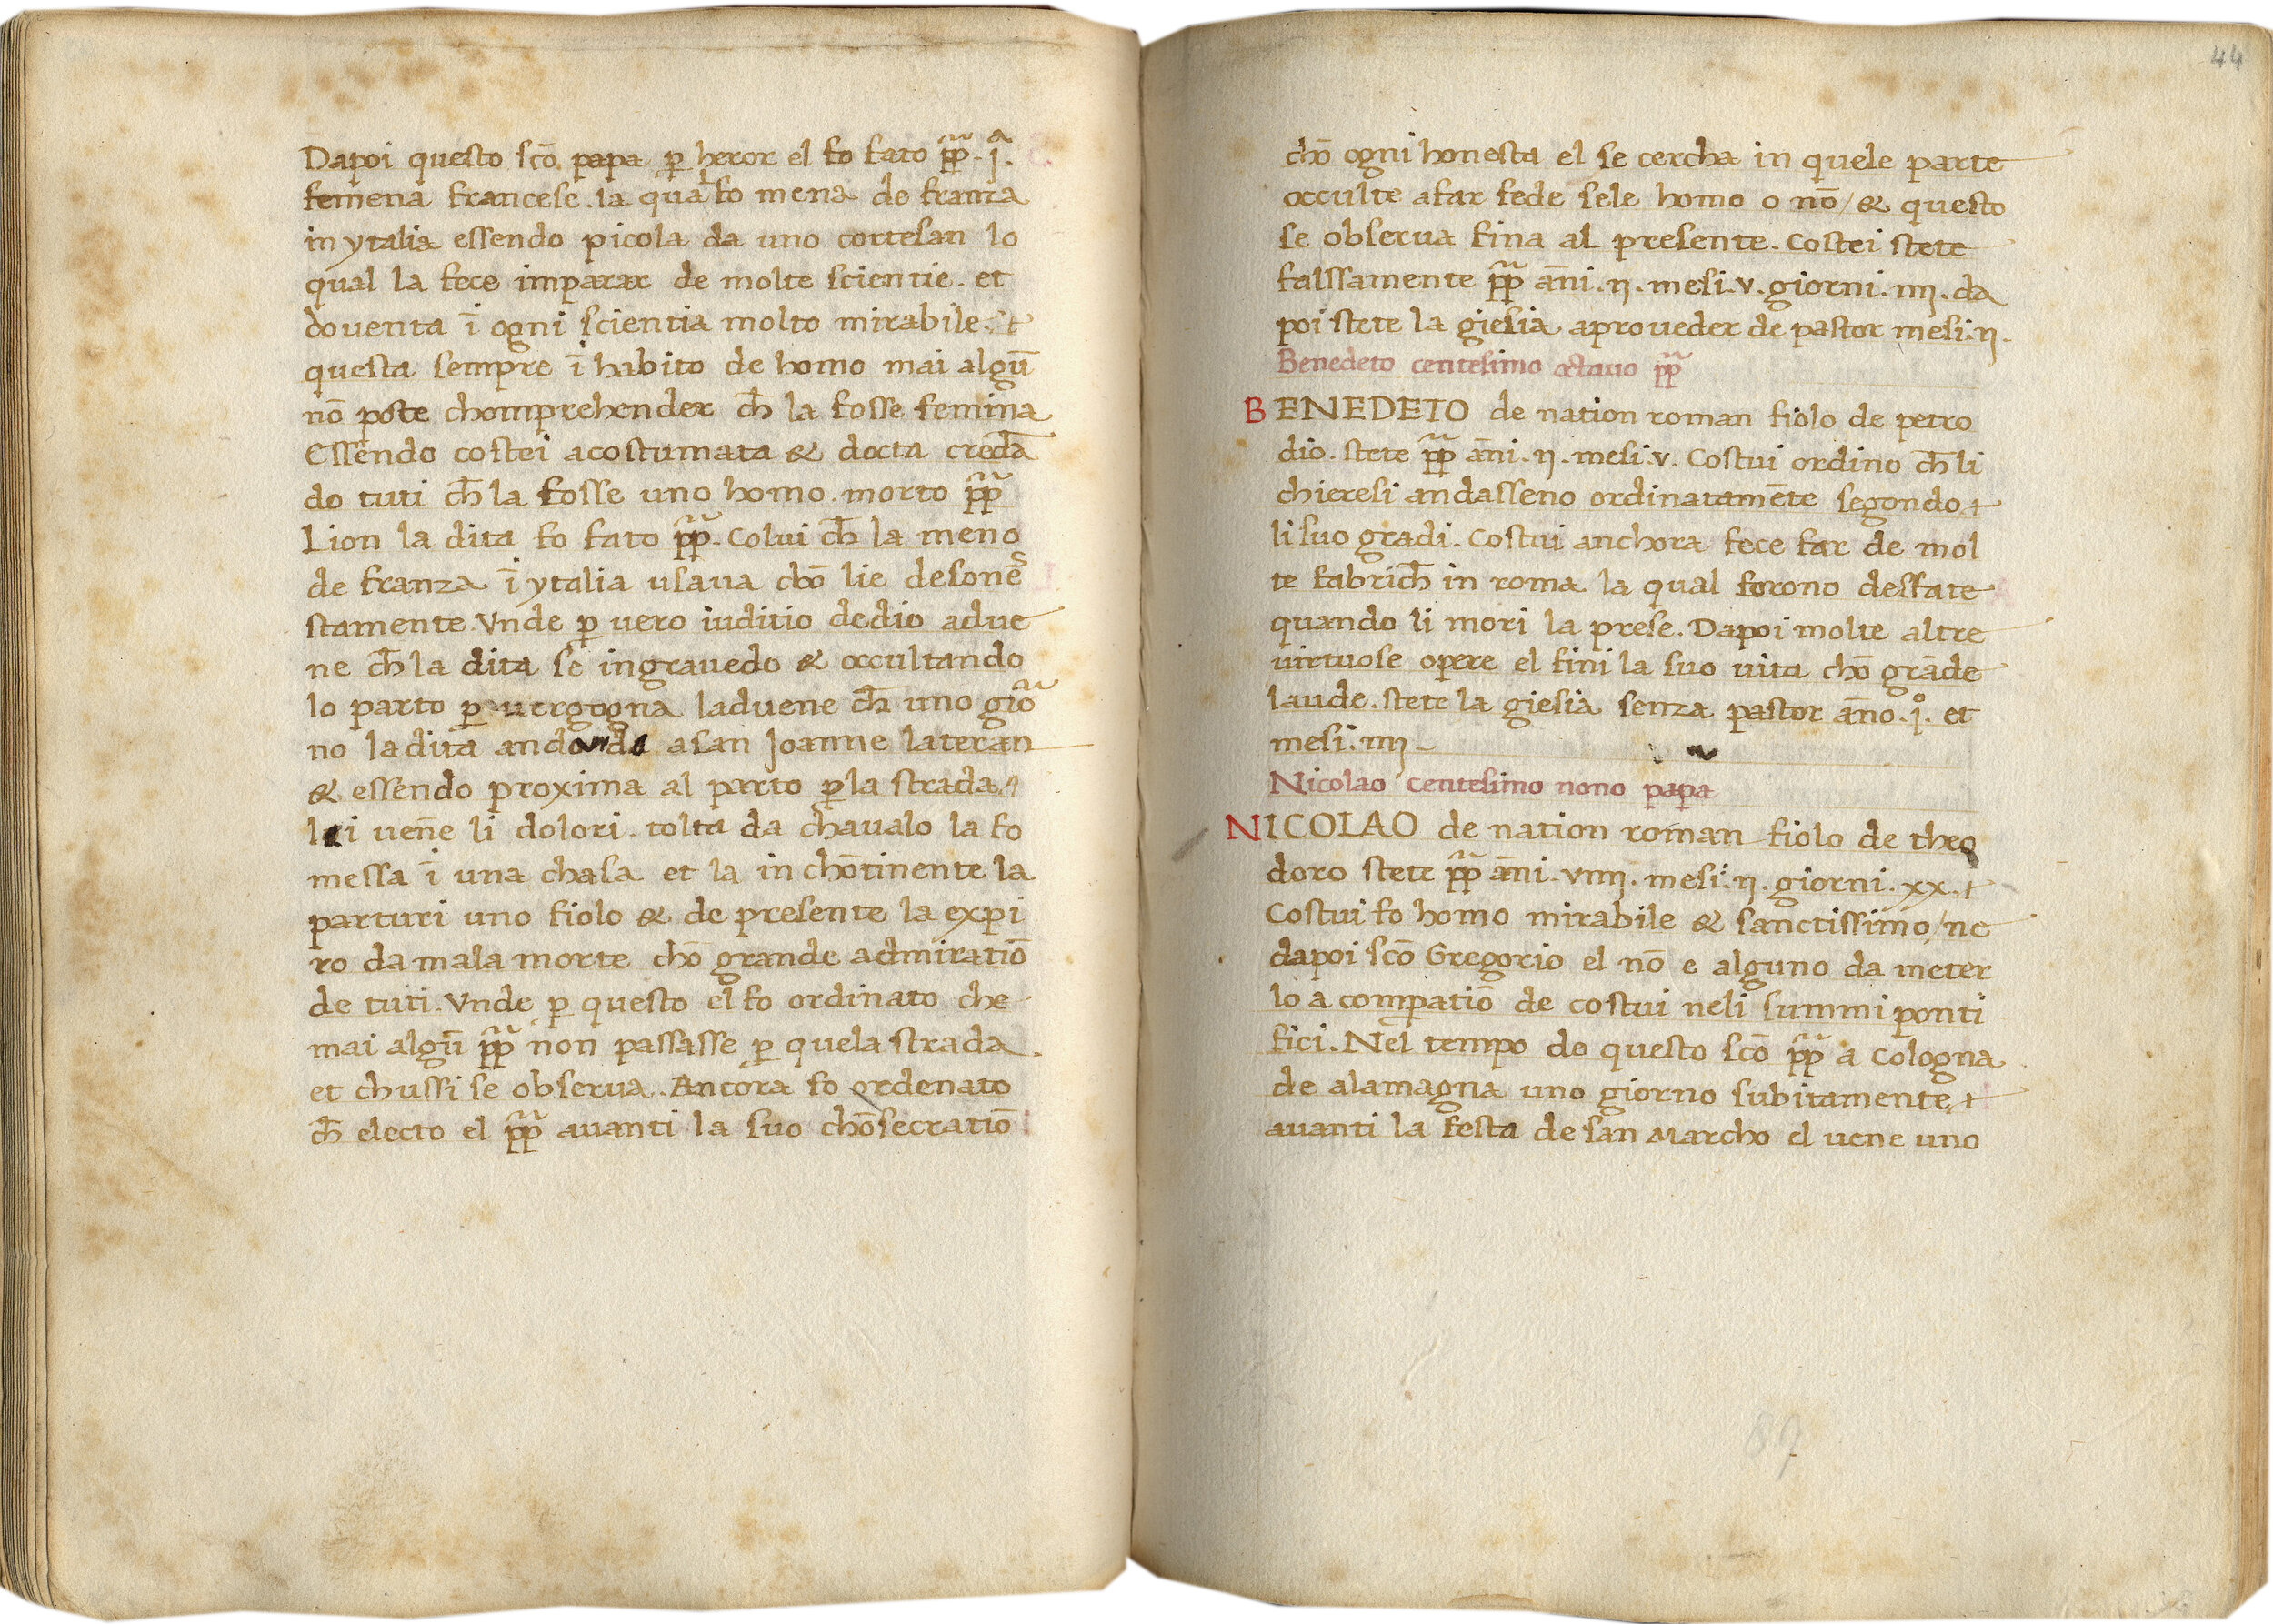 Dapoi questo scō. papa ꝑ heror el fo fato pp̄. .jᵃ.
femena francese. la qual fo mena de franza
in ytalia essendo picola da uno cortesan lo
qual la fece imparar de molte scientie. et
doventa ī ogni scientia molto mirabile. et
questa sempre ī habito de homo mai algū
nō pote chomprehender ch̄ la fosse femina
Essendo costei acostumata & docta credā
do tuti ch̄ la fosse uno homo. morto pp̄
Lion la dita fo fato pp̄. Colui ch̄ la meno
de franza ī ytalia usaua chō lie desone
stamente. Vnde ꝑ uero iuditio dedio adue
ne ch̄ la dita se ingrauedo & occultando
lo parto ꝑ uergogna laduene ch̄ uno gior̄
no la dita andando asan Joanne lateran
& essendo proxima al parto ꝑ la strada
lei uen̄e li dolori. tolta da chaualo la fo
messa ī una chasa et la in chōtinente la
parturi uno fiolo & de presente la expi
ro da mala morte chō grande admiratiō
de tuti. Vnde ꝑ questo el fo ordinato che
mai algū pp̄ non passasse ꝑ quela strada.
et chussi se obserua. Ancora fo ordenato
ch̄ electo el pp̄ auanti la suo chōsecratiō
44
chō ogni honesta el se cercha in quele parte
occulte afar fede sele homo o nō / & questo
se obserua fina al presente. Costei stete
falssamente pp̄ an̄i .ij. mesi .v. giorni .iiij. da
poi stete la giesia aproueder de pastor mesi .ij.
Benedeto centesimo octauo pp̄
BENEDETO de nation roman fiolo de petro
dio. stete pp̄ an̄i .ij. mesi .v. Costui ordino ch̄ li
chieresi andasseno ordinatamēte segondo
li suo gradi. Costui anchora fece far de mol
te fabrich̄ in roma la qual forono desfate
quando li mori la prese. Dapoi molte altre
uirtuose opere el fini la suo uita chō grāde
laude. stete la giesia senza pastor an̄o .jº. et
mesi .iiij.
Nicolao centesimo nono papa
NICOLAO de nation roman fiolo de theo
doro stete pp̄ an̄i .viiij. mesi .ij. giorni .xx.
Costui fo homo mirabile & sanctissimo / ne
dapoi scō Gregorio el nō e alguno da meter
lo a compatiō de costui neli summi ponti
fici. Nel tempo de questo scō pp̄ a Cologna
de alamagna uno giorno subitamente
auanti la festa de san Marcho el uene uno
89